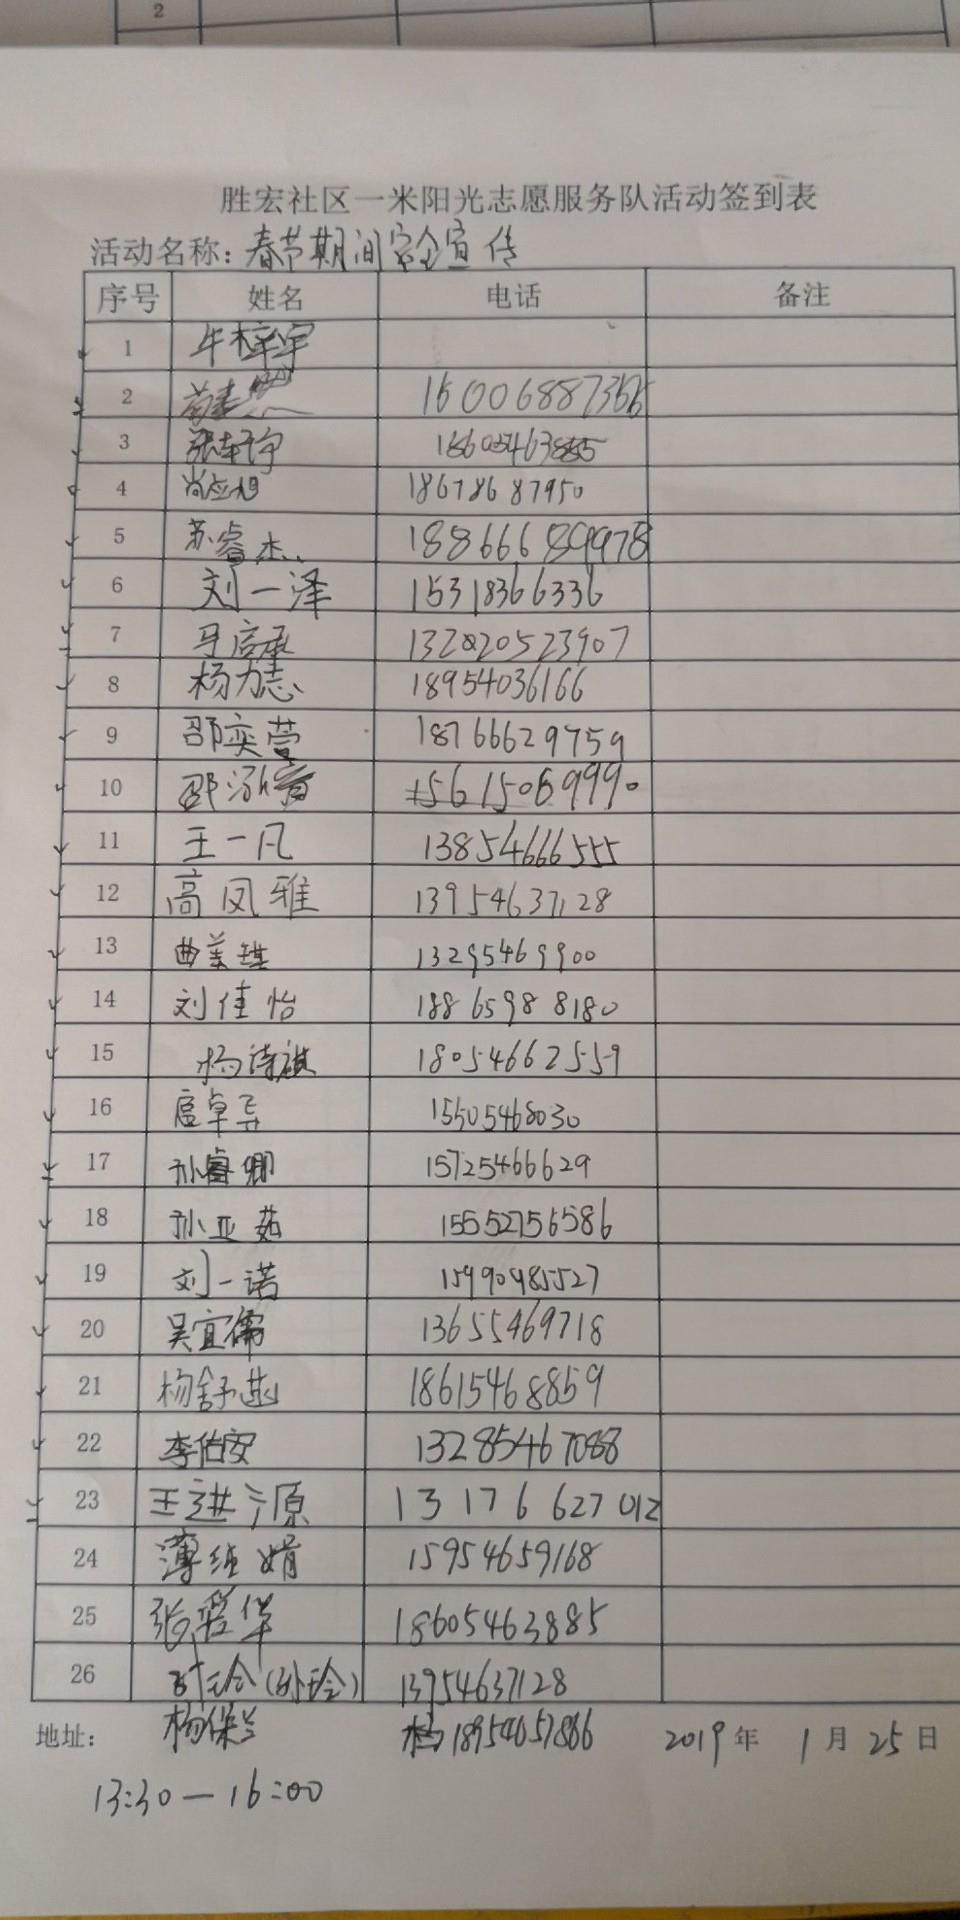 2
胜宏社区一米阳光志愿服务队活动签到表
活动名称: 春节期间安全宣传
序号 姓名 电话 备注
1 牛梓宇
2
3 18605463885
4 18678687950
5 苏睿杰 18866689978
6 刘一泽 15318366336
7 马启承
8 杨力志 18954036166
9 邵奕萱 18766629759
10 邵 15615069990
11 王一凡 13854666555
12 高凤雅 13954637128
13 曲美琪 13295469900
14 刘佳怡 18865988180
15 杨诗祺 18054662559
16 扈卓 15505468030
17 孙睿卿 15725466629
18 孙亚茹 15552756586
19 刘一诺 15990985527
20 吴宜儒 13655469718
21 杨舒 18615468859
22 李佑安 13285467088
23 王进源 13176627012
24 薄 娟 15954659168
25 张爱华 18605463885
26 孙玲(孙玲) 13954637128
杨保兰 18954057866
地址: 2019年 1月25日
13:30—16:00